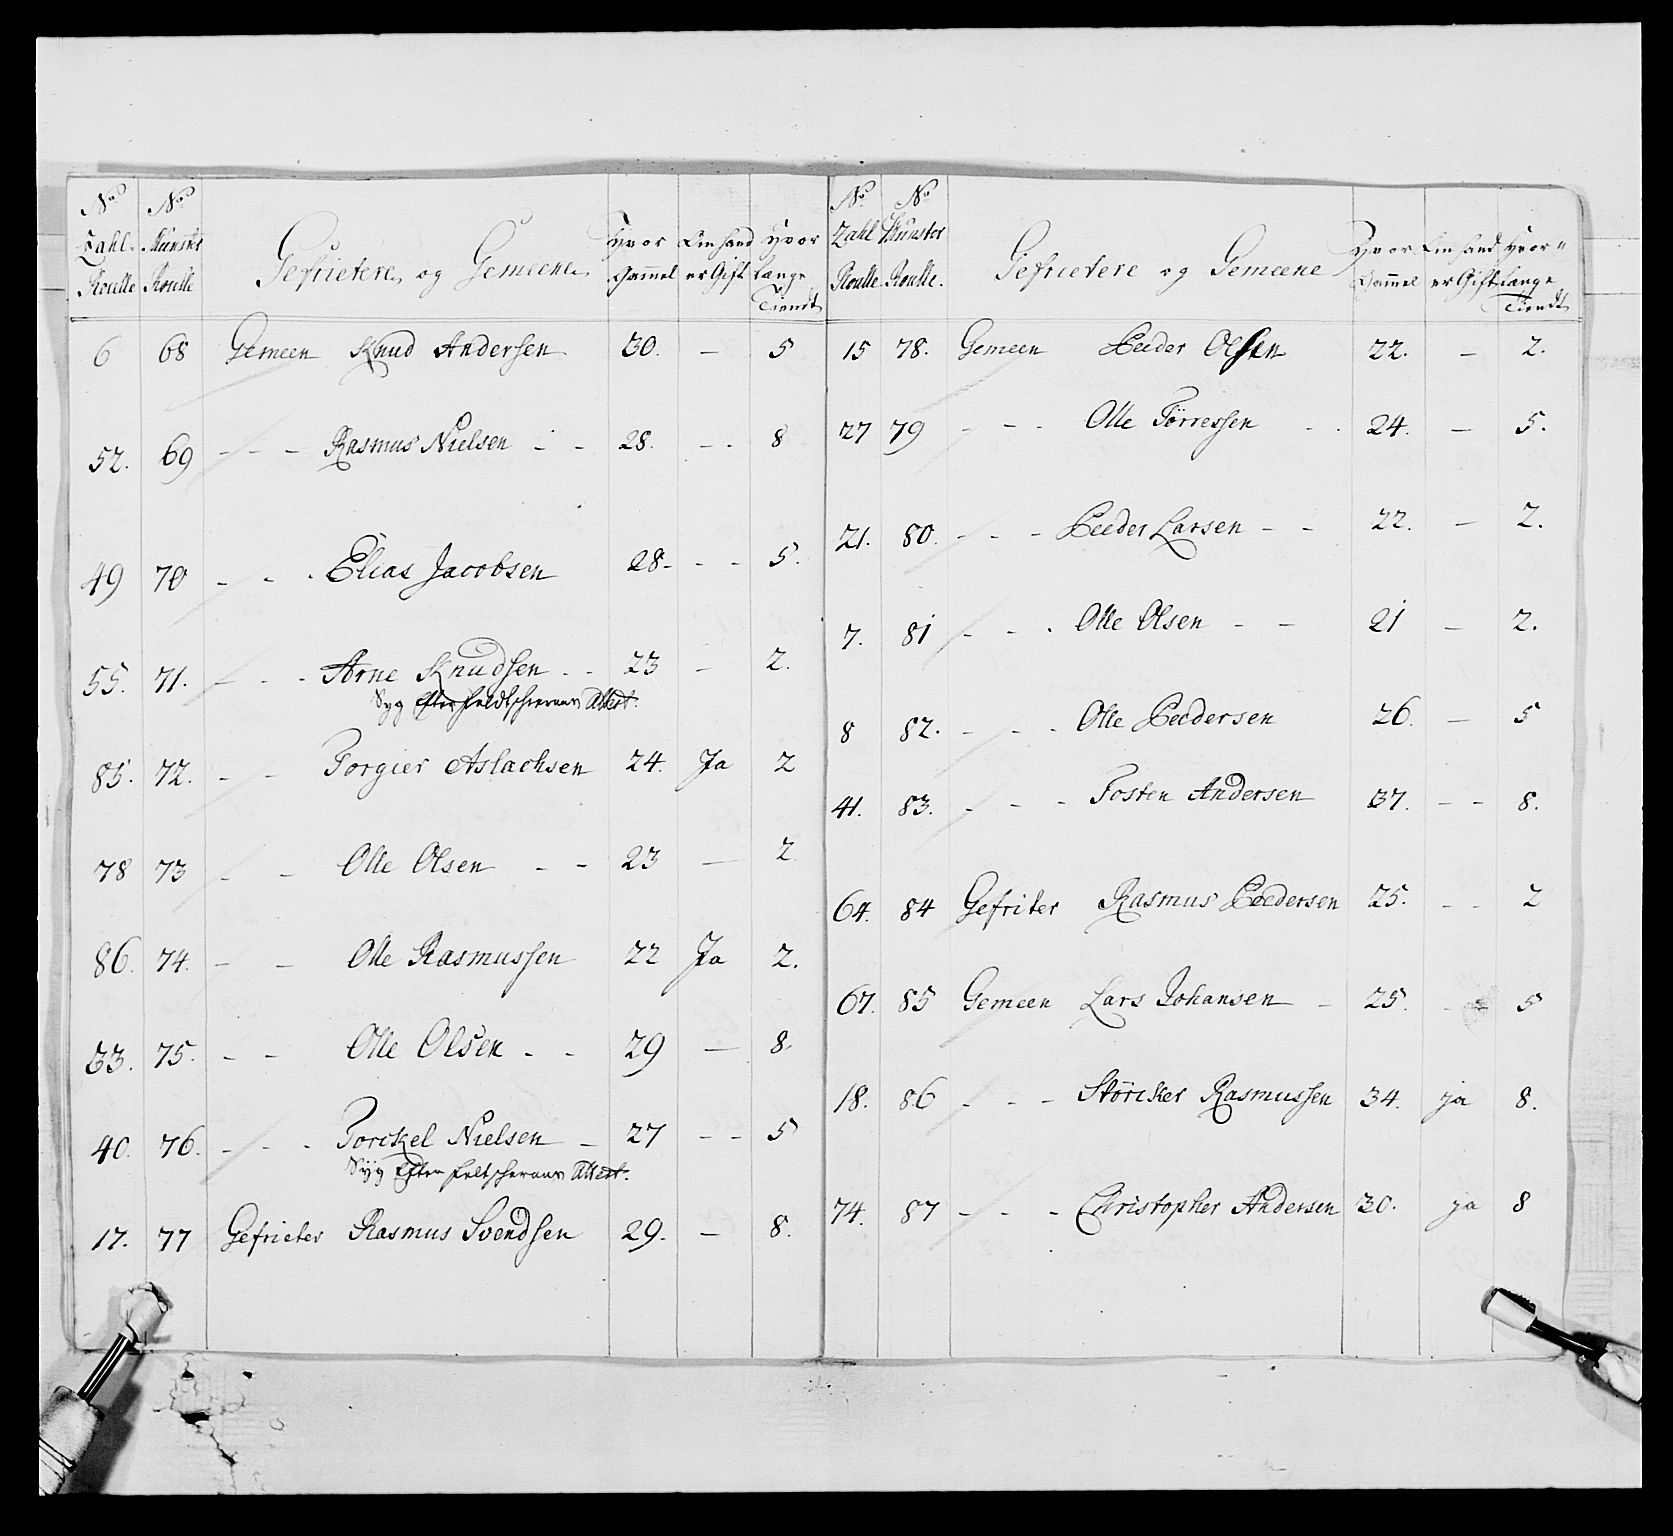 No No
Zahl- Munster
Roulle Roulle
Gefrietere og Gemeene
Hvor Gammel
Om hand er Gift
Hvor Længe Tiendt
6 68 Gemeen Knud Andersen 30. — 5
52. 69 - - - Rasmus Nielsen - - 28. - - 8
49 70 - - - Elias Jacobsen 28- - - 5.
55. 71. - - - Arne Knudsen - - 23 - 2.
Syg efter Feldtscherens Attest.
85. 72. - - Torgier Aslachsen 24. Ja 2
78 73 - - Olle Olsen - - 23 — 2
86. 74. - - Olle Rasmussen 22 Ja 2.
33. 75. - - Olle Olsen - - 29 — 8.
40. 76. - - - Torckel Nielsen - 27 - - 5
Syg Efter Feltscherens Attest.
17. 77 Gefrieter Rasmus Svendsen 29. - 8.
No No
Zahl Munster
Roulle. Roulle.
Gefrietere og Gemeene
Hvor Gammel
Om hand er Gift
Hvor Længe Tiendt
15 78. Gemeen Peeder Olsen 22. - 2.
27 79 - - - Olle Törressen - - 24. - 5.
21. 80. - - - Peeder Larsen - - 22. - 2.
7. 81 - - - Olle Olsen - - 21 - 2.
8 82. - - - Olle Peedersen 26. - 5
41. 83. - - - Tosten Andersen 37. - - 8.
64. 84 Gefriter Rasmus Peedersen 25. - - 2
67. 85 Gemeen Lars Johansen - 25. - - 5
18. 86 - - - Störcker Rasmussen 34. ja 8.
74. 87 - - - Christopher Andersen 30. ja 8